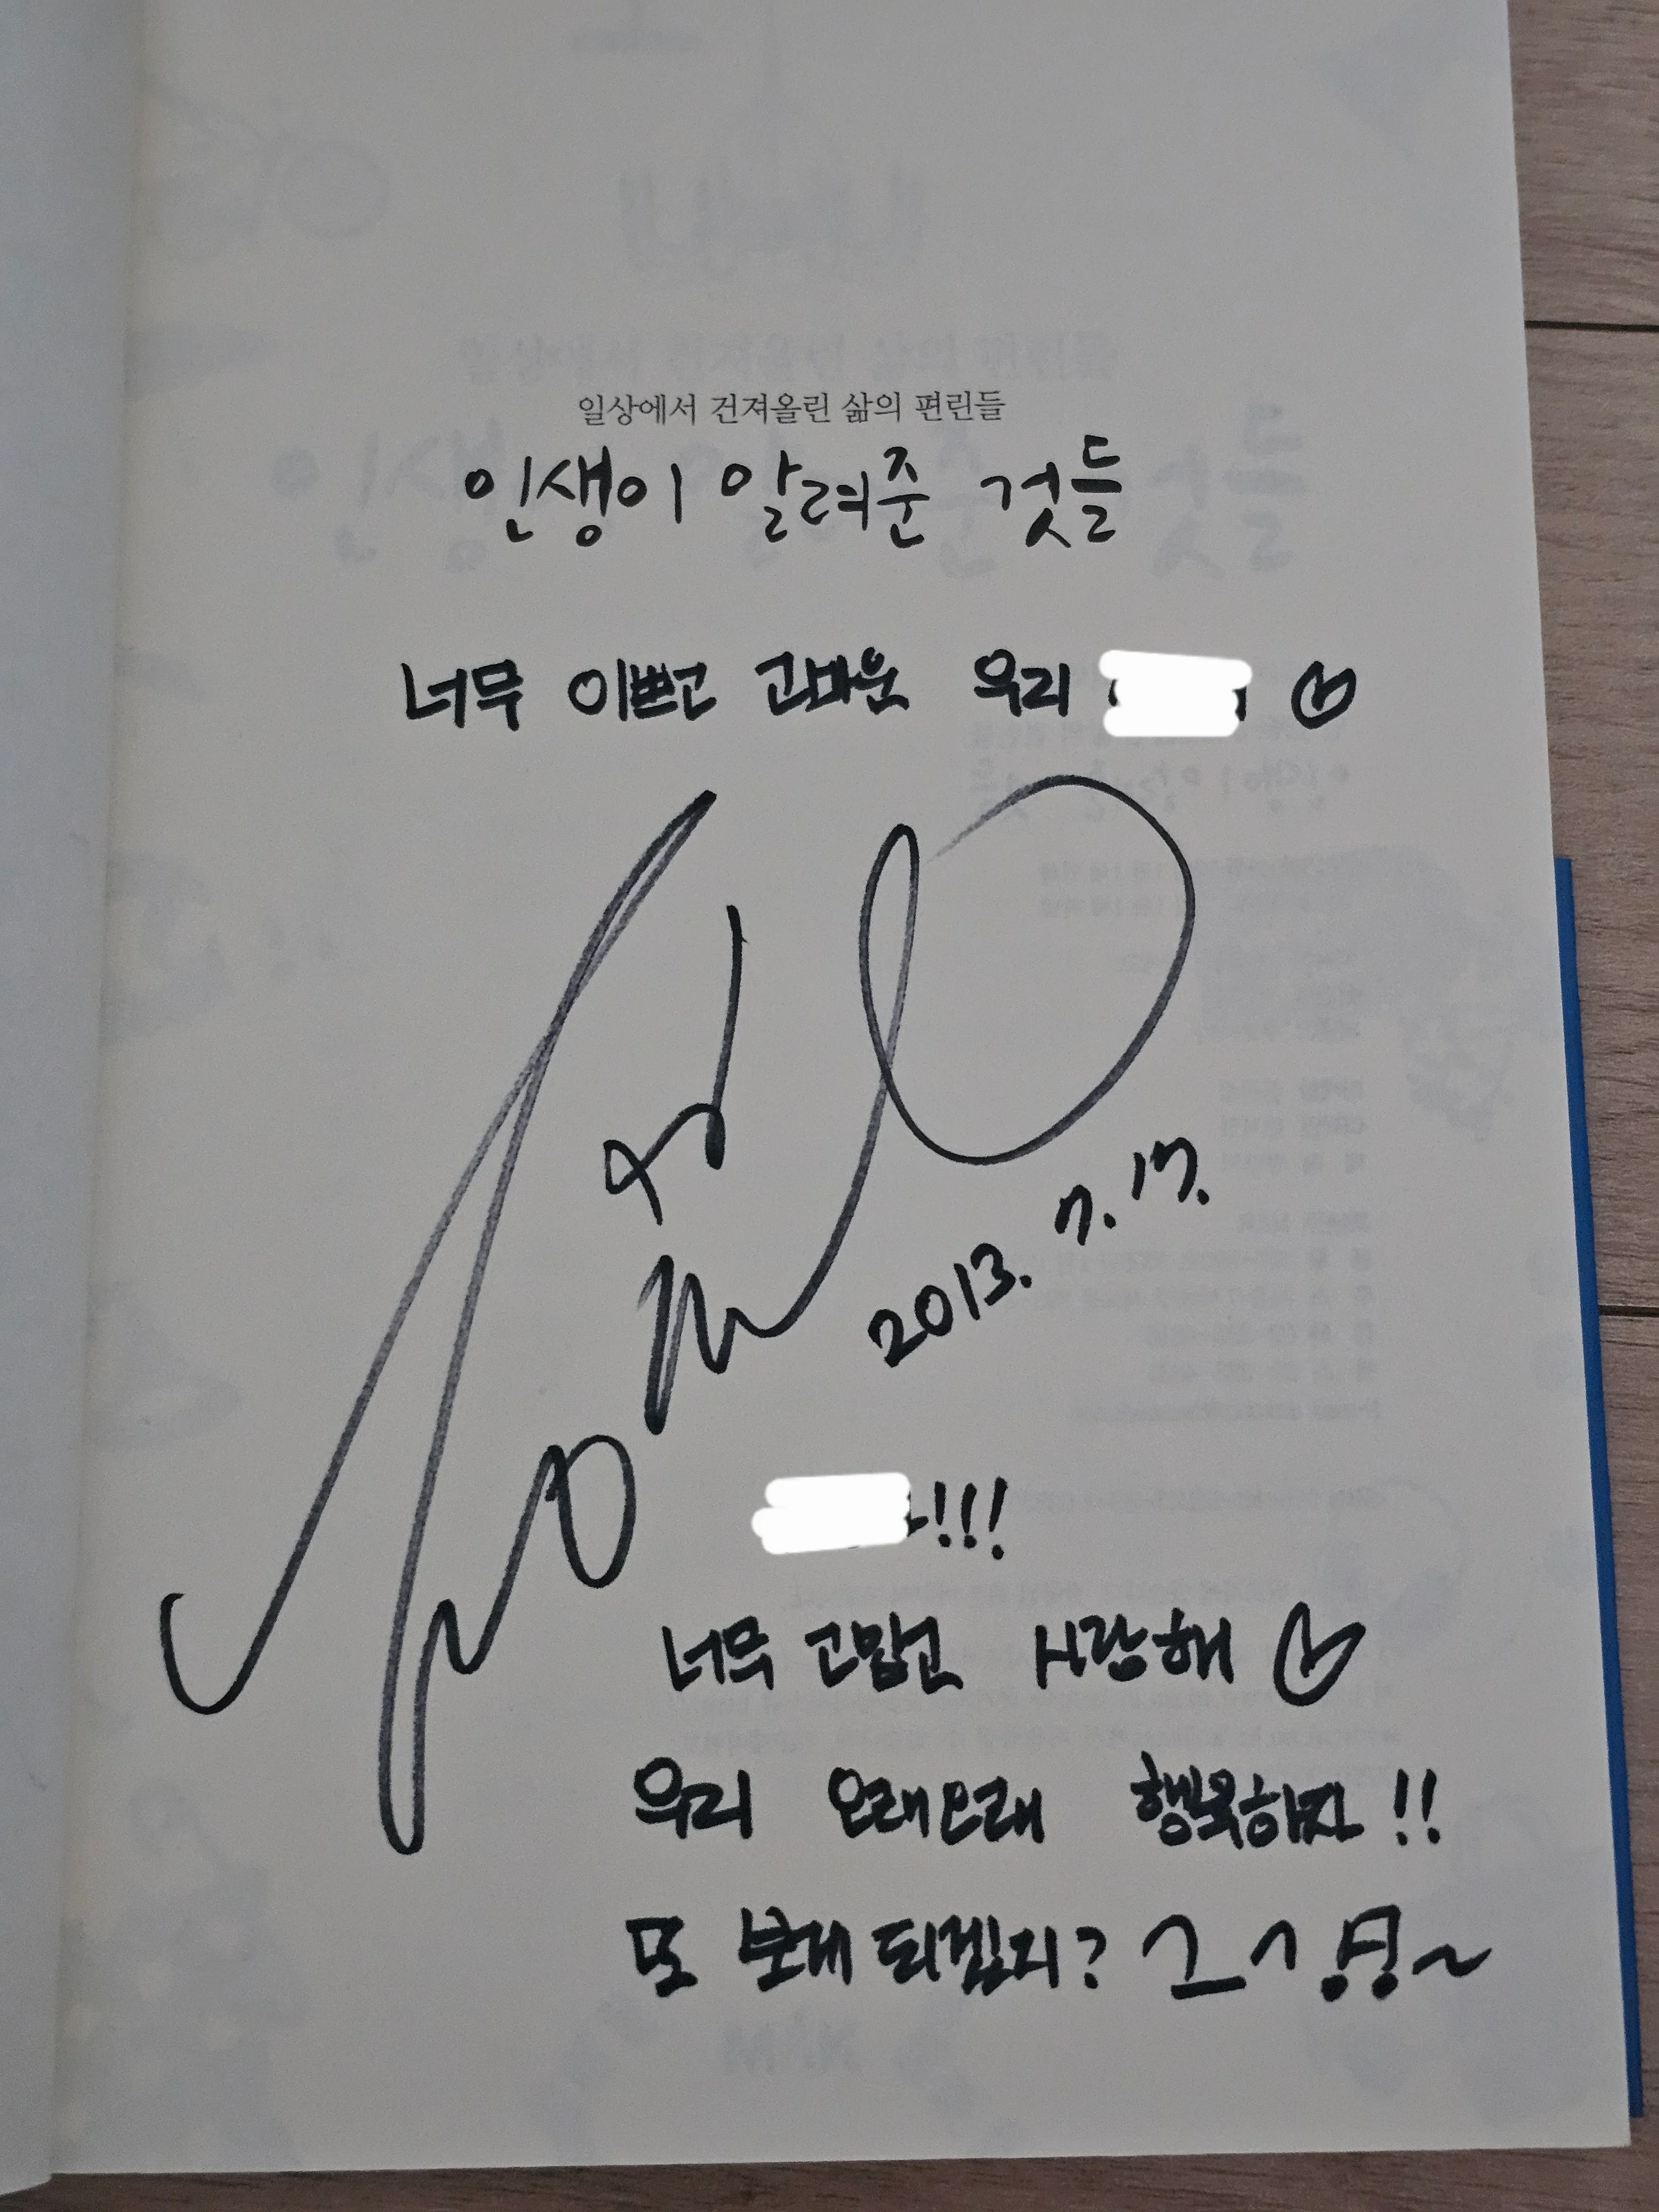 일상에서 건져올린 삶의 편린들
인생이 알려준 것들
너무 이쁘고 고마운 우리
2013. 7. 17.
!!!
너무 고맙고 사랑해
우리 오래오래 행복하자!!
또 보게 되겠지? ㄱ_ㄱ 뿅~